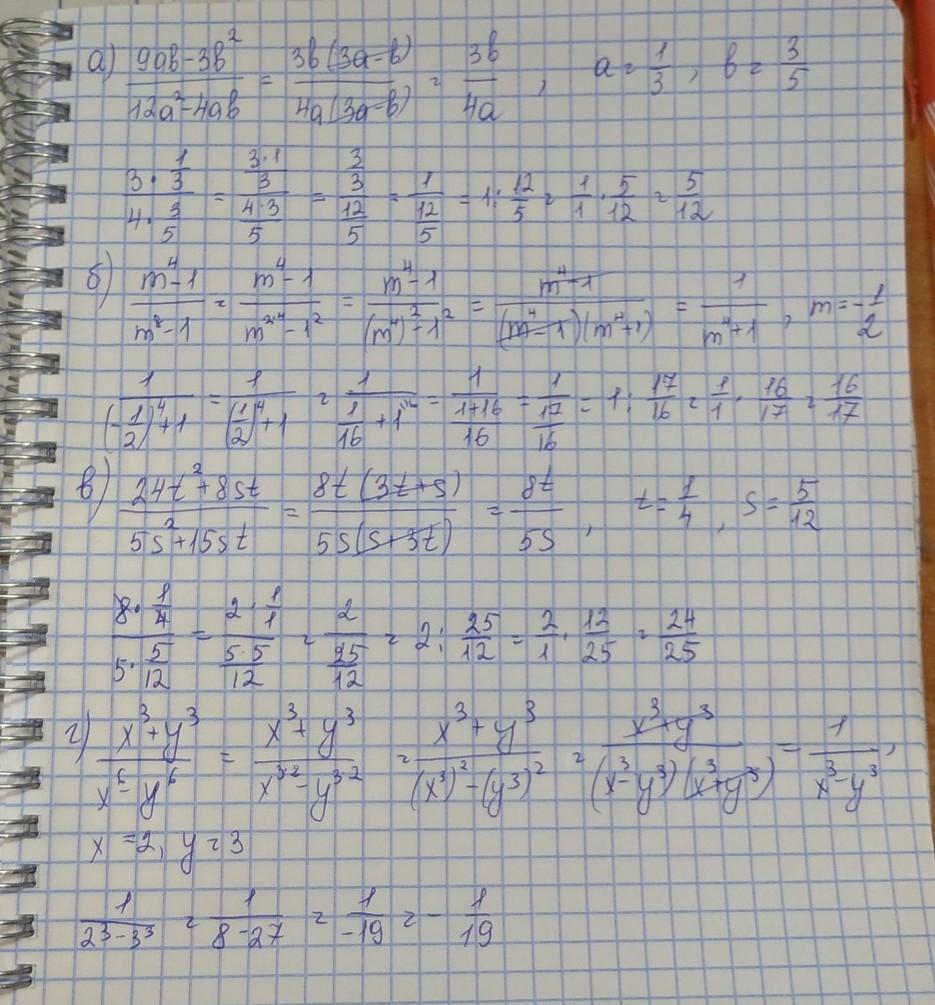 а) (9ab-3b²)/(12a²-4ab) = (3b(3a-b))/(4a(3a-b)) = 3b/4a, a=1/3, b=3/5
(3·1/3)/(4·3/5) = (3·1/3)/(4·3/5) = (3/3)/(12/5) = 1/(12/5) = 1:12/5 = 1/1·5/12 = 5/12
б) (m⁴-1)/(m⁸-1) = (m⁴-1)/(m²·⁴-1²) = (m⁴-1)/((m⁴)²-1²) = (m⁴-1)/((m⁴-1)(m⁴+1)) = 1/(m⁴+1), m=-1/2
1/((-1/2)⁴+1) = 1/((1/2)⁴+1) = 1/(1/16+1^16) = 1/((1+16)/16) = 1/(17/16) = 1:17/16 = 1/1·16/17 = 16/17
в) (24t²+8st)/(5s²+15st) = (8t(3t+s))/(5s(s+3t)) = 8t/5s, t=1/4, s=5/12
(8·1/4)/(5·5/12) = (2·1/1)/(5·5/12) = 2/(25/12) = 2:25/12 = 2/1·12/25 = 24/25
г) (x³+y³)/(x⁶-y⁶) = (x³+y³)/(x³·²-y³·²) = (x³+y³)/((x³)²-(y³)²) = (x³+y³)/((x³-y³)(x³+y³)) = 1/(x³-y³),
x=2, y=3
1/(2³-3³) = 1/(8-27) = 1/-19 = -1/19